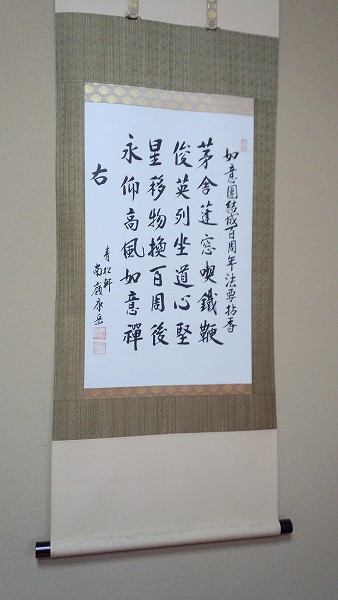 如意團結城百周年法要拈香
茅舍蓬窓喫鐵鞭
俊英列坐道心堅
星移物換百周後
永仰高風如意禪
右
青松軒
南嶺康岳